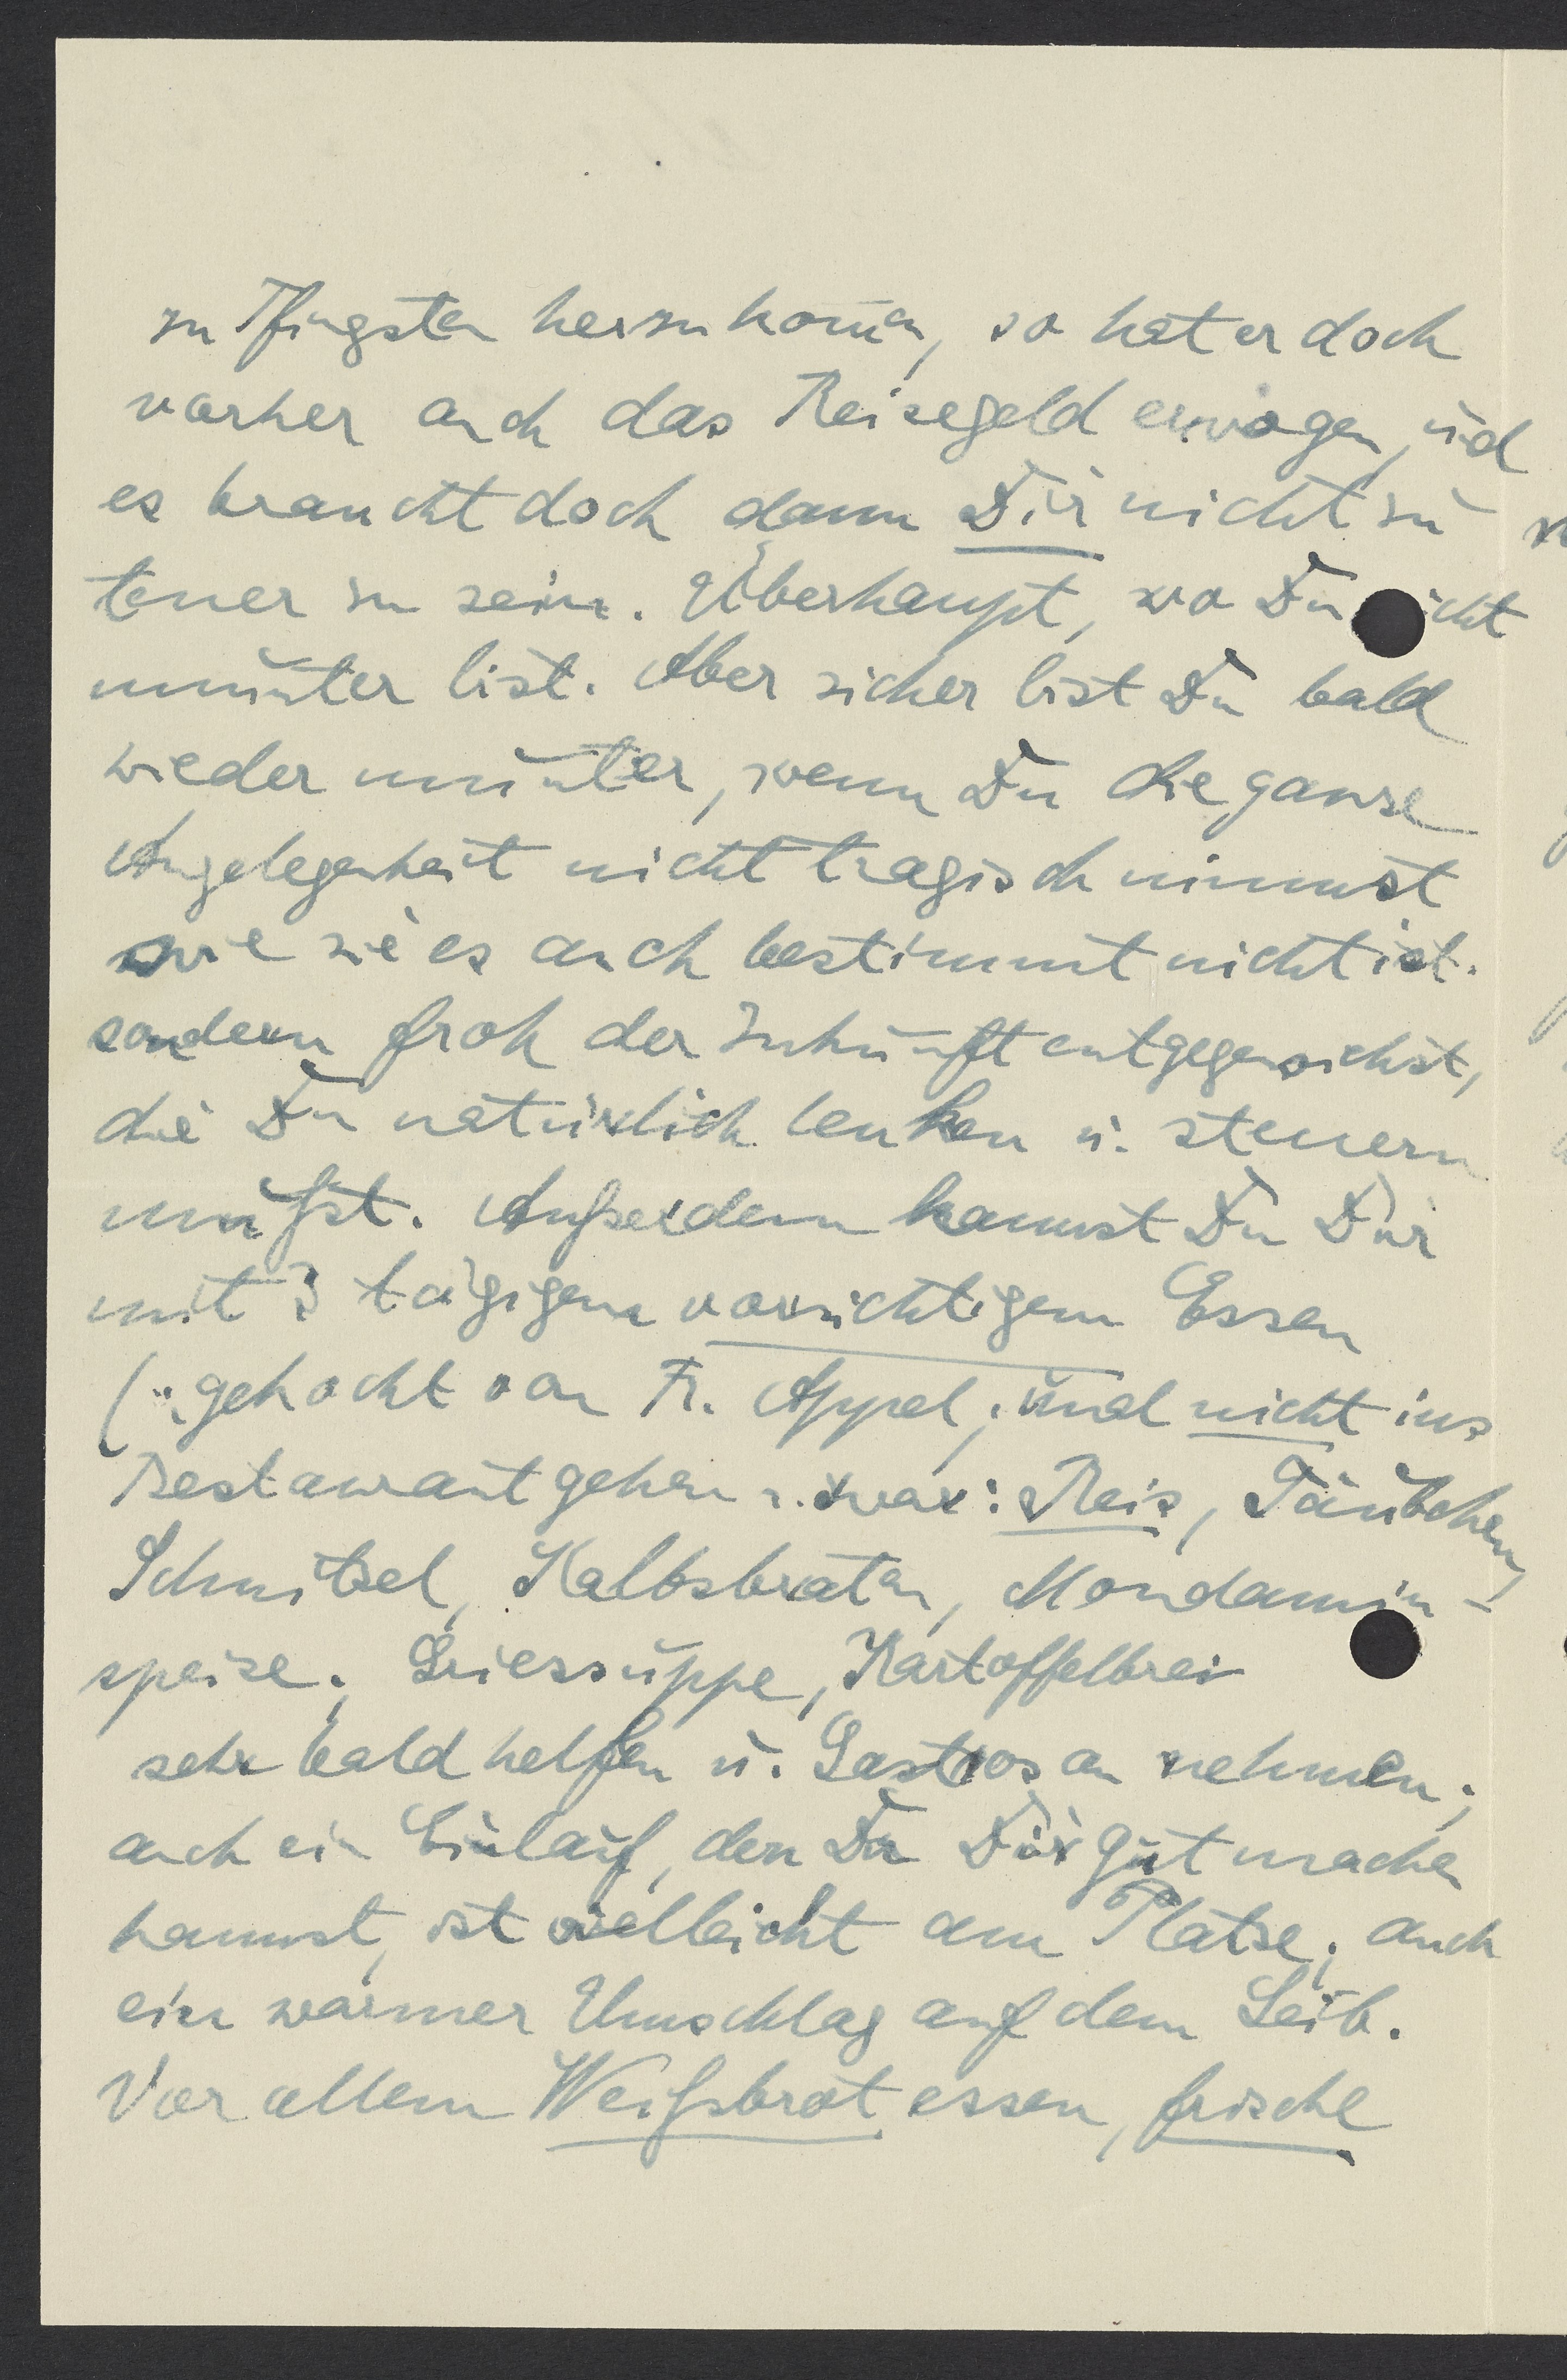 zu Pfingsten herzukom̄en, so hat er doch
vorher auch das Reisegeld erwogen, und
es braucht doch dann Dir nicht zu
teuer zu sein. Überhaupt, wo Du nicht
munter bist. Aber sicher bist Du bald
wieder munter, wenn Du die ganze
Angelegenheit nicht tragisch nimmst
wie sie es auch bestimmt nicht ist.
sondern froh der Zukunft entgegensiehst,
die Du natürlich lenken u. steuern
mußt. Außerdem kannst Du Dir
mit 3 tägigem vorsichtigem Essen
(: gekocht von Fr. Appel, und nicht ins
Restaurant gehen u. zwar: Reis, Täubchen,
Schnitzel, Kalbsbraten, Mondamin-
speise, Griessuppe, Kartoffelbrei
sehr bald helfen u. Gastrosan nehmen;
auch ein Einlauf, den Du Dir gut machen
kannst, ist vielleicht am Platze; auch
ein warmer Umschlag auf dem Leib.
Vor allem Weißbrot essen, frische